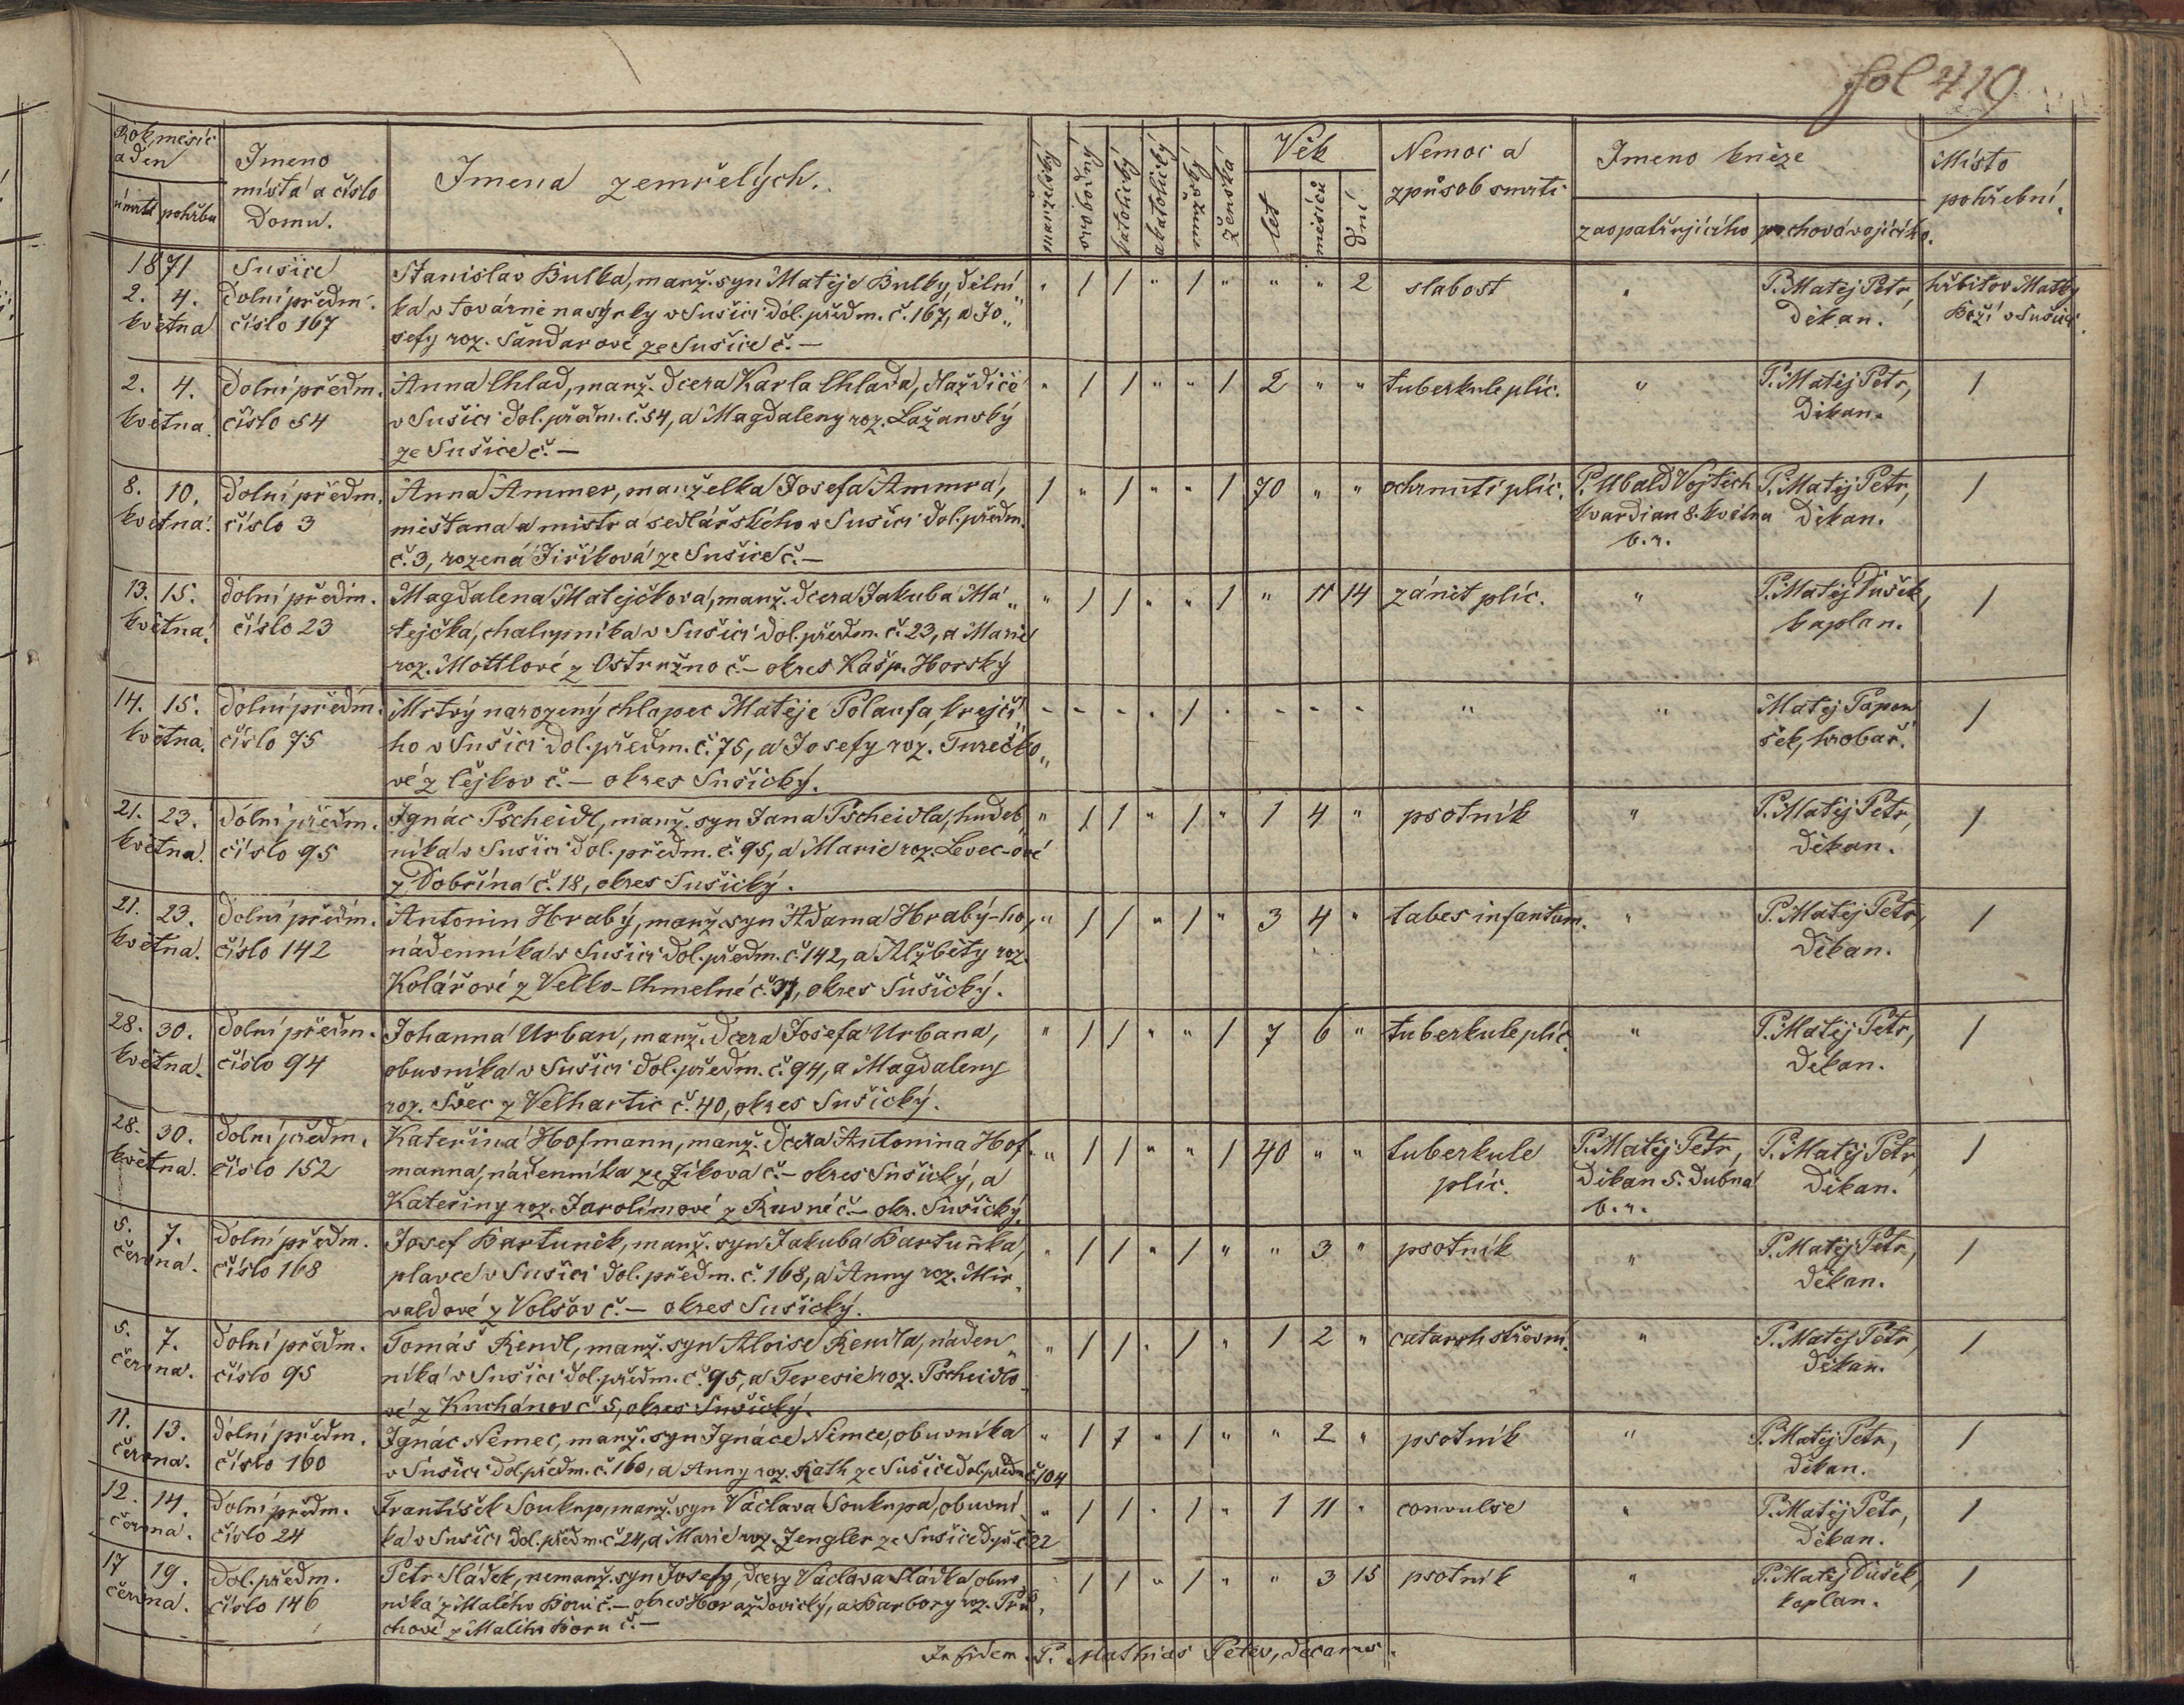 fol 419
Rok, měsíc a den
úmrtí
pohřbu
Jmeno místa a číslo Domu.
Jmena zemřelých.
manželský
svobodný
katolický
akatolický
mužský
ženská
Věk
let
měsíců
dní
Nemoc a způsob smrti
Jmeno kněze
zaopatřujícího
pochovávajícího.
Místo pohřební.
1871
2. 4. května
Sušice Dolní předm. číslo 167
Stanislav Bulka, manž. syn Matěje Bulky, dělní
ka v továrně na sýrky v Sušici dol. předm. č. 167, a Jo„
sefy roz. Sandarové ze Sušice č. —
" / / " / " " " 2
slabost
"
P. Matěj Petr, Děkan.
hřbitov Matky Boží v Sušici.
2. 4. května.
Dolní předm. číslo 54
Anna Chlad, manž. dcera Karla Chlada,
v Sušici dol. předm. č. 54, a Magdaleny roz. Lažanský
ze Sušice č. —
" / / " " / 2 " "
tuberkule plic.
"
P. Matěj Petr, Děkan.
/
8. 10. května.
Dolní předm. číslo 3
Anna Ammer, manželka Josefa Ammra,
měšťana a mistra sedlářského v Sušici dol. předm.
č. 3, rozená Jiříková ze Sušice č. —
/ " / " " / 70 " "
ochrnutí plic.
P. Ubald Vojtěch kvardian 8. května b. r.
P. Matěj Petr, Děkan.
/
13. 15. května.
Dolní předm. číslo 23
Magdalena Matejčkova, manž. dcera Jakuba Ma„
tejčka, chalupníka v Sušici dol. předm. č. 23, a Marie
roz. Mottlové z Ostružno č. — okres Kašp. Horský
" / / " " / " 11 14
zánět plic.
"
P. Matěj Dušek, kaplan.
/
14. 15. května.
Dolní předm. číslo 75
Mrtvý narozený chlapec Matěje Polaufa, krejčí„
ho v Sušici dol. předm. č. 75, a Josefy roz. Turečko„
vé z Čejkov č. — okres Sušický.
- - - - / - - - -
"
"
Matěj Papou šek, hrobař.
/
21. 23. května.
Dolní předm. číslo 95
Ignác Pscheidl, manž. syn Jana Pscheidla, hudeb
níka v Sušici dol. předm. č. 95, a Marie roz. Levec-ové
z Dobřína č. 18, okres Sušický.
" / / " / " 1 4 "
psotník
"
P. Matěj Petr, Děkan.
/
21. 23. května.
Dolní předm. číslo 142
Antonin Hrabý, manž. syn Adama Hrabý-ho,
nádenníka v Sušici dol. předm. č. 142, a Alžběty roz.
Kolářové z Velko-Chmelné č. 37, okres Sušický.
" / / " / " 3 4 "
tabes infantum.
"
P. Matěj Petr, Děkan.
/
28. 30. května.
Dolní předm. číslo 94
Johanna Urban, manž. dcera Josefa Urbana,
obuvníka v Sušici dol. předm. č. 94, a Magdaleny
roz. Švec z Velhartic č. 40, okres Sušický.
" / / " " / 7 6 "
tuberkule plic.
"
P. Matěj Petr, Děkan.
/
28. 30. května.
Dolní předm. číslo 152
Kateřina Hofmann, manž. dcera Antonina Hof„
manna, nádenníka ze Žikova č. — okres Sušický, a
Kateřiny roz. Jarolímové z Rovné č. — okr. Sušický.
" / / " " / 40 " "
tuberkule plic.
P. Matěj Petr, Děkan 5. dubna b. r.
P. Matěj Petr, Děkan.
/
5. 7. června.
Dolní předm. číslo 168
Josef Bartuněk, manž. syn Jakuba Bartuňka,
plavce v Sušici dol. předm. č. 168, a Anny roz. Mir„
waldové z Volšov č. — okres Sušický.
" / / " / " " 3 "
psotník
"
P. Matěj Petr, Děkan.
/
5. 7. června.
Dolní předm. číslo 95
Tomáš Rendl, manž. syn Aloise Rendla, náden„
níka v Sušici dol. předm. č. 95, a Teresie roz. Pscheidlo„
vé z Kuchánov č. 5, okres Sušický.
" / / " / " 1 2 "
catarrh střevní.
"
P. Matěj Petr, Děkan.
/
11. 13. června.
Dolní předm. číslo 160
Ignác Němec, manž. syn Ignáce Němce, obuvníka
v Sušici dol. předm. č. 160, a Anny roz. Rath ze Sušice dol. předm. č. 104
" / 1 " / " " 2 "
psotník
"
P. Matěj Petr, Děkan.
/
12. 14. června.
Dolní předm. číslo 24
František Soukup, manž. syn Václava Soukupa, obuvní
ka v Sušici dol. předm. č. 24, a Marie roz. Zengler ze Sušice d. př. č. 22
" / / " / " 1 11 "
convulse
"
P. Matěj Petr, Děkan.
/
17 19. června.
Dol. předm. číslo 146
Petr Sládek, nemanž. syn Josefy, dcery Václava Sládka, obuv
níka z Malého Boru č. — okres Horažďovický, a Barbory roz.
chové z Malého Boru č. —
" / / " / " " 3 15
psotník
"
P. Matěj Dušek, kaplan.
/
In fidem P. Mathias Peter, decanus.